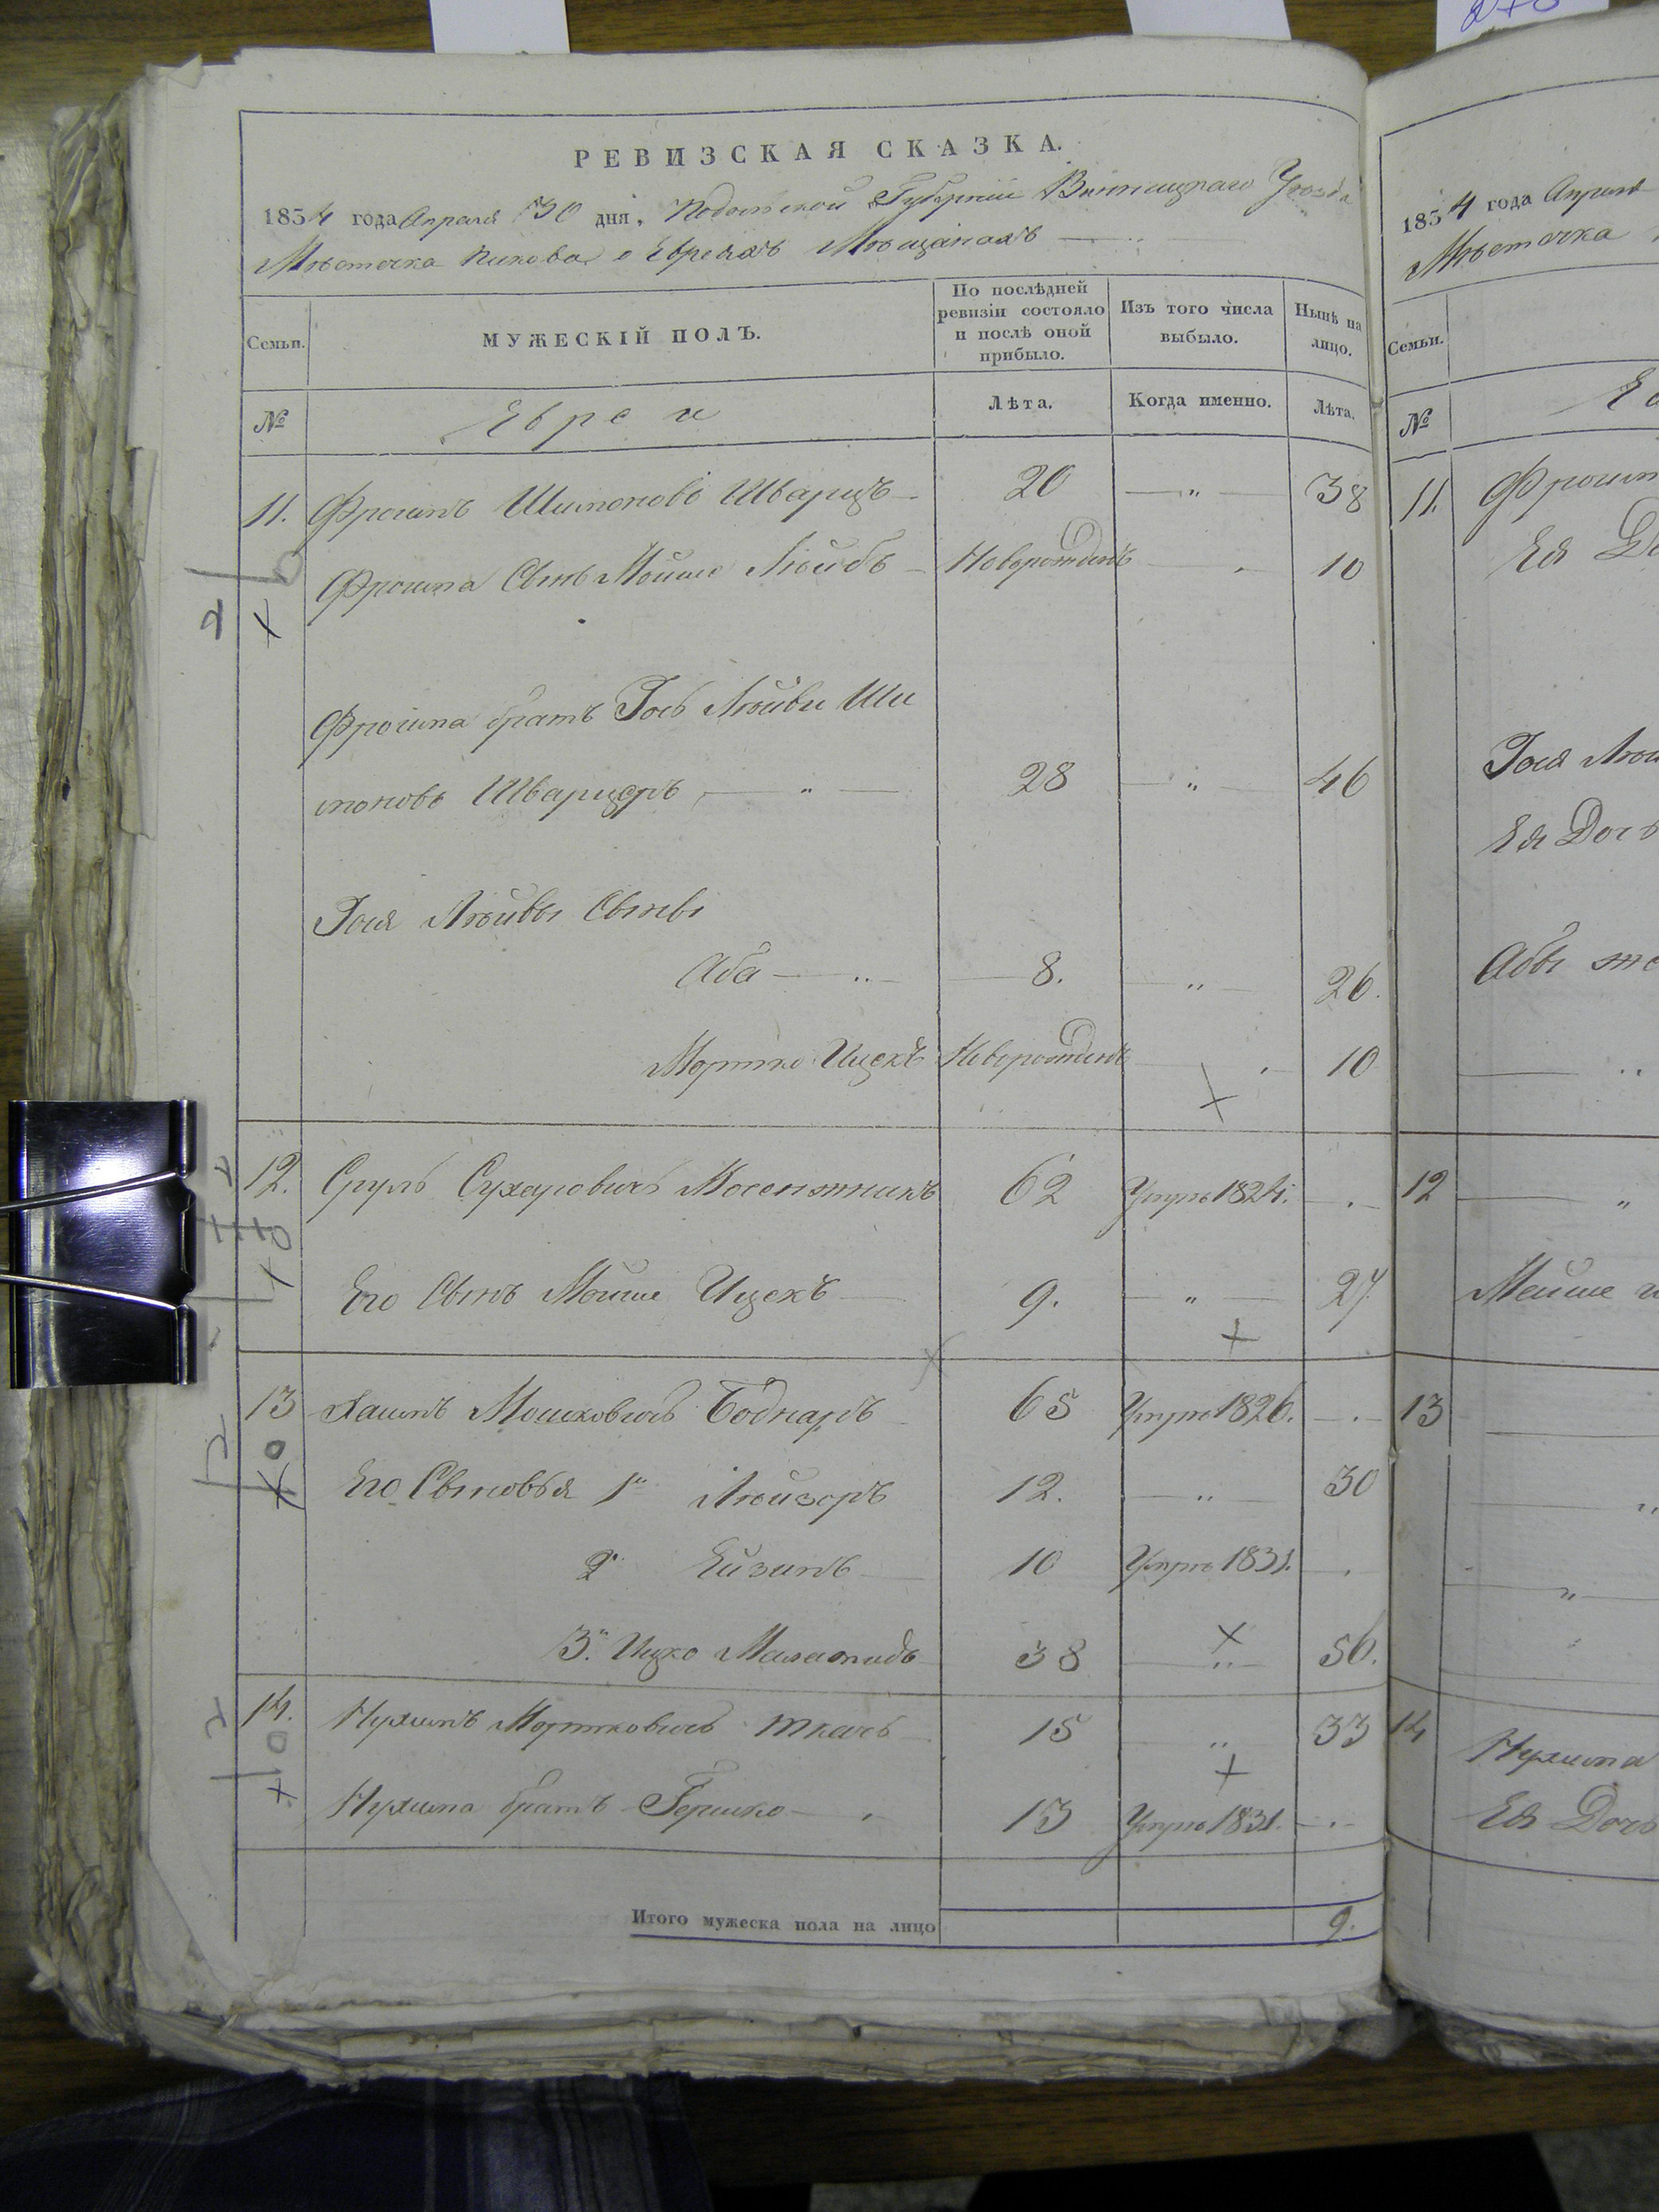 РЕВИЗСКАЯ СКАЗКА.
1834 года Апреля 30 дня, Подольской Губернии Винницкаго Уезда
Мѣстечка Пикова о Евреяхъ Мѣщанахъ
Семьи.
МУЖЕСКІЙ ПОЛЪ.
По послѣдней ревизіи состояло и послѣ оной прибыло.
Изъ того числа выбыло.
Нынѣ на лицо.
№
Евреи
Лѣта.
Когда именно.
Лѣта.
11. Фроимъ Шимоновъ Шварцъ 20 " 38
Фроима Сынъ Мойше Лейбъ Новорожденъ 10
Фроима братъ Лейби Ши
моновъ Шварцеръ " 28 " 46
Лейбы Сынъ
Аба " 8. " 26.
Мортко Ицекъ Новорожденъ 10
12. Сруль 62 Умръ 1824. .
Его Сынъ Мойше Ицекъ 9. " 27
13 Мошковичъ Боднаръ 65 Умръ 1826. .
Его Сыновья 1й Лейзоръ 12. " 30
2й 10 Умръ 1831. .
3й Ицко 38 " 56.
14. Нухимъ Мортковичъ Ткачъ 15 " 33
Нухима братъ Гершко 13 Умръ 1831. .
Итого мужеска пола на лицо 9.
1834 года Апреля
Мѣстечка
Семьи.
№
Ев
11. Фроим
Ея До
Лей
Ея Дочь
Абы же
12 "
Мойше и
13
14 Нухима
Ея Дочь